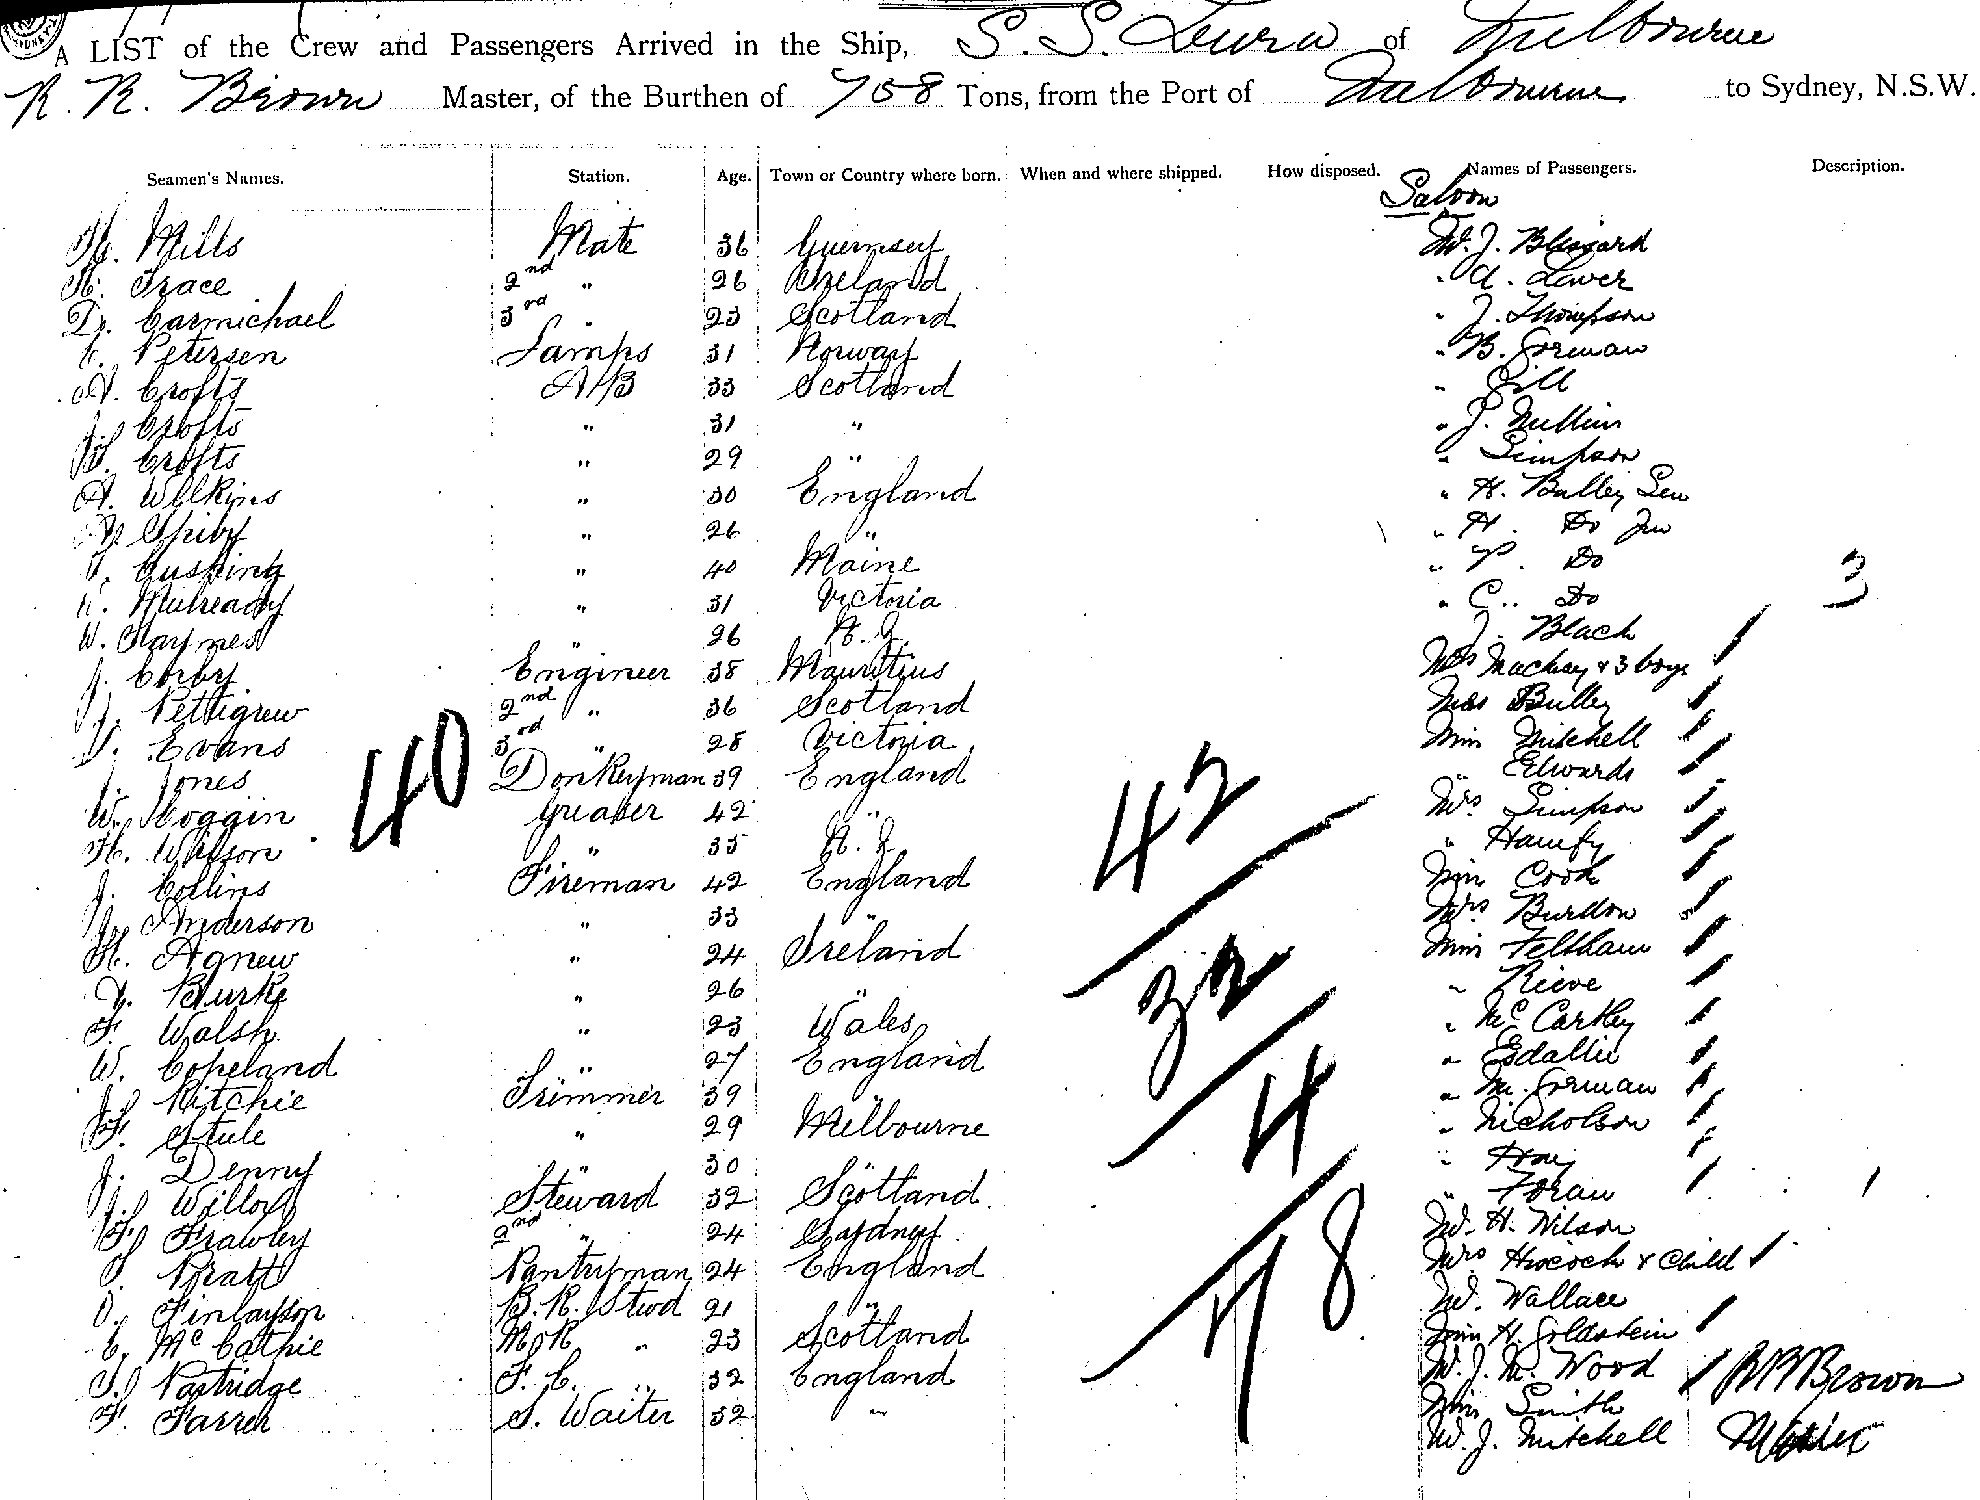 A LIST of the Crew and Passengers Arrived in the Ship, S. S. Leura of Melbourne
R. R. Brown Master, of the Burthen of 758 Tons, from the Port of Melbourne to Sydney, N.S.W.
Seamen's Names. Station. Age. Town or Country where born. When and where shipped. How disposed. Names of Passengers. Description.
Saloon
H. Mills Mate 36 Guernsey Mr. J. Blizzard
Trace 2nd " 26 Ireland " A. Lawer
D. Carmichael 3rd " 23 Scotland " J. Thompson
C. Petersen Lamps 31 Norway " B. Gorman
A. Crofts A/B 33 Scotland " Gill
J. Crofts " 31 " " J. Mullins
Crofts " 29 " " Simpson
A. Wilkins " 30 England " H. Bulley Sen
Spiby " 26 " " H. Do Jun
Cushing " 40 Maine " P. Do
Mulready " 31 Victoria " C. Do 3
W. Haymes " 26 N.Z. J. Black
J. Corby Engineer 38 Mauritius Mrs Mackay & 3 boys
J. Pettigrew 2nd " 36 Scotland Mrs Bulley
Evans 3rd " 28 Victoria Miss Mitchell
J. Jones Donkeyman 39 England " Edwards
W. Goggin Greaser 42 " Mrs Simpson
40
42
H. Wilson " 35 N.Z. "
J. Collins Fireman 42 England Miss Cook
Anderson " 33 " Mrs Burdon
H. Agnew " 24 Ireland Miss Feltham
Burke " 26 " " Rieve
32
F. Walsh " 23 Wales " McCarthy
W. Copeland " 27 England " Esdaille
J. Ritchie Trimmer 39 " " M. Gorman
4
F. Steele " 29 Melbourne " Nicholson
J. Denny " 30 " " Hay
J. Willox Steward 32 Scotland " Foran
F. Frawley 2nd " 24 Sydney Mr. H. Wilson
Pratt Pantryman 24 England Mrs & Child
78
Finlayson B.R. Stwd 21 " Mr. Wallace
C. McCathie M&R " 23 Scotland Miss H. Goldstein
Partridge F.C. " 32 England Mr. J. M. Wood R R Brown
F. Farrer S. Waiter 32 " Miss Smith
Mr. J. Mitchell Master